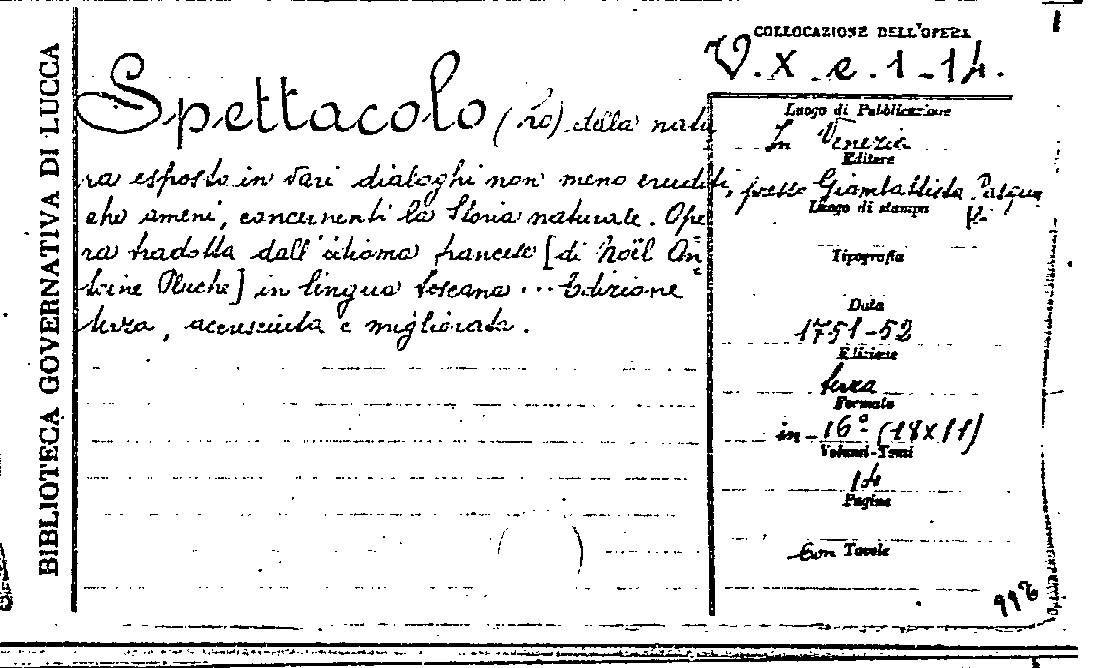 BIBLIOTECA GOVERNATIVA DI LUCCA
COLLOCAZIONE DELL'OPERA
V. X. e. 1-14.
Spettacolo (Lo) della natu
ra esposto in vari dialoghi non meno eruditi,
che ameni, concernenti la Storia naturale. Ope
ra tradotta dall'idioma francese [di Noël An=
toine Pluche] in lingua toscana ... Edizione
terza, accresciuta e migliorata.
Luogo di Pubblicazione
In Venezia
Editore
presso Giambattista Pasqua
li
Luogo di stampa
Tipografia
Data
1751-52
Edizione
terza
Formato
in-16º (18x11)
Volumi-Tomi
14
Pagine
Con Tavole